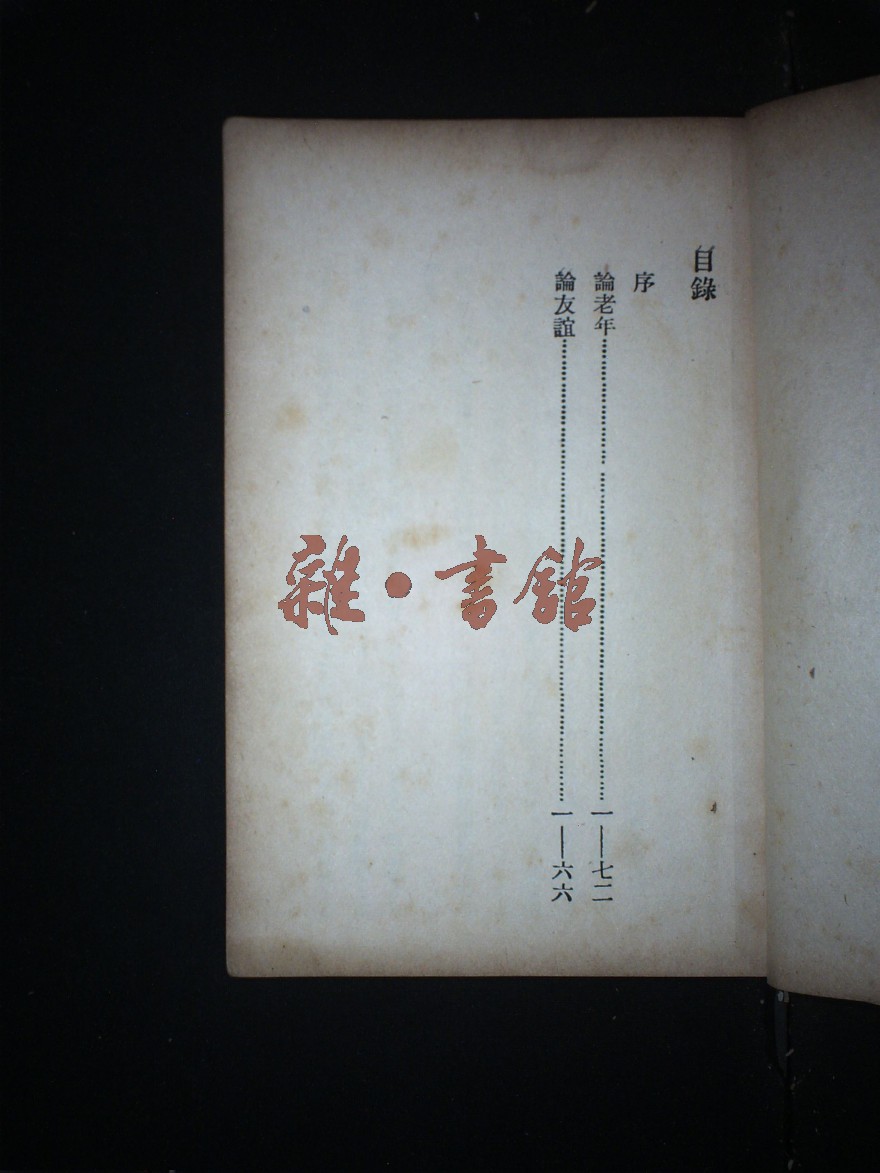 目錄
序
論老年……………………一——七二
論友誼……………………一——六六
雜·書館